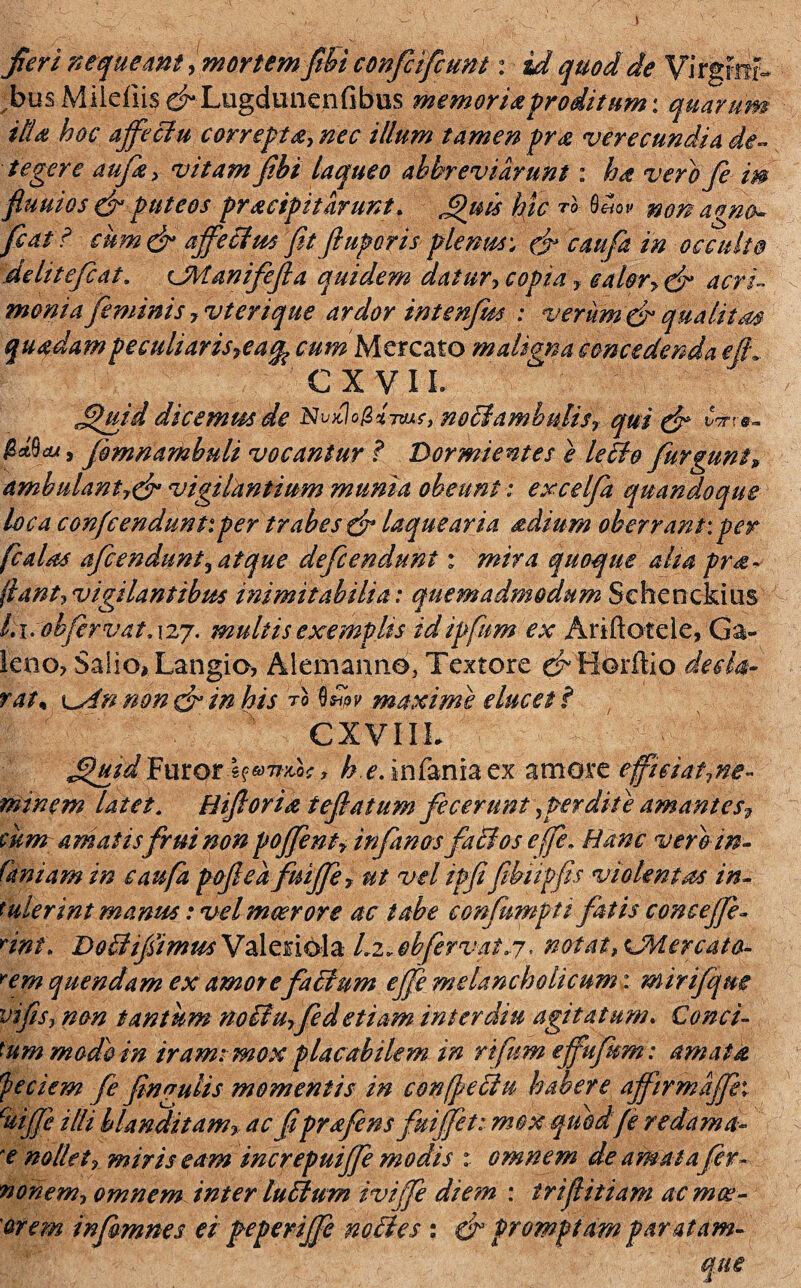 fieri nequeant, mortem ſibi conſciſcunt: id quod de Virgini-
bus Mileſiis & Lugdunenſibus memoriæ proditum: quarum
illæ hoc affectu correptæ, nec illum tamen præ verecundia de-
tegere auſæ, vitam ſibi laqueo abbreviârunt: hæ verò ſe in
fluuios & puteos præcipitârunt. Quis hîc τὸ θεῖον non agno-
ſcat? cùm & affectus ſit ſtuporis plenus: & cauſa in occulto
deliteſcat. Manifeſta quidem datur, copia, calor, & acri-
monia ſeminis, vterique ardor intenſus: verùm & qualitas
quædam peculiaris, eaq; cum Mercato maligna concedenda eſt.
CXVII.
Quid dicemus de Νυκτοβάταις, noctambulis, qui & ὑπνο-
βάθαι, ſomnambuli vocantur? Dormientes è lecto ſurgunt,
ambulant, & vigilantium munia obeunt: excelſa quandoque
loca conſcendunt: per trabes & laquearia ædium oberrant: per
ſcalas aſcendunt, atque deſcendunt: mira quoque alia præ-
ſtant, vigilantibus inimitabilia: quemadmodum Schenckius
l.1. obſervat. 127. multis exemplis id ipſum ex Ariſtotele, Ga-
leno, Salio, Langio, Alemanno, Textore & Horſtio decla-
rat. An non & in his τὸ θεῖον maximè elucet?
CXVIII.
Quid Furor ἐρωτικὸς, h.e. inſania ex amore efficiat, ne-
minem latet. Hiſtoriæ teſtatum fecerunt, perditè amantes,
cùm amatis frui non poſſent, inſanos factos eſſe. Hanc verò in-
ſaniam in cauſa poſteà fuiſſe, ut vel ipſi ſibiipſis violentas in-
tulerint manus: vel mœrore ac tabe conſumpti fatis conceſſe-
rint. Doctiſſimus Valeriola l.2. obſervat.7. notat, Mercato-
rem quendam ex amore factum eſſe melancholicum: miriſque
viſis, non tantùm noctu, ſed etiam interdiu agitatum. Conci-
tum modò in iram: mox placabilem in riſum effuſum: amatæ
ſpeciem ſe ſingulis momentis in conſpectu habere affirmâſſe:
fuiſſe illi blanditam, ac ſi præſens fuiſſet: mox quòd ſe redama-
re nollet, miris eam increpuiſſe modis: omnem de amata ſer-
monem, omnem inter luctum iviſſe diem: triſtitiam ac mœ-
orem inſomnes ei peperiſſe noctes: & promptam paratam-
que